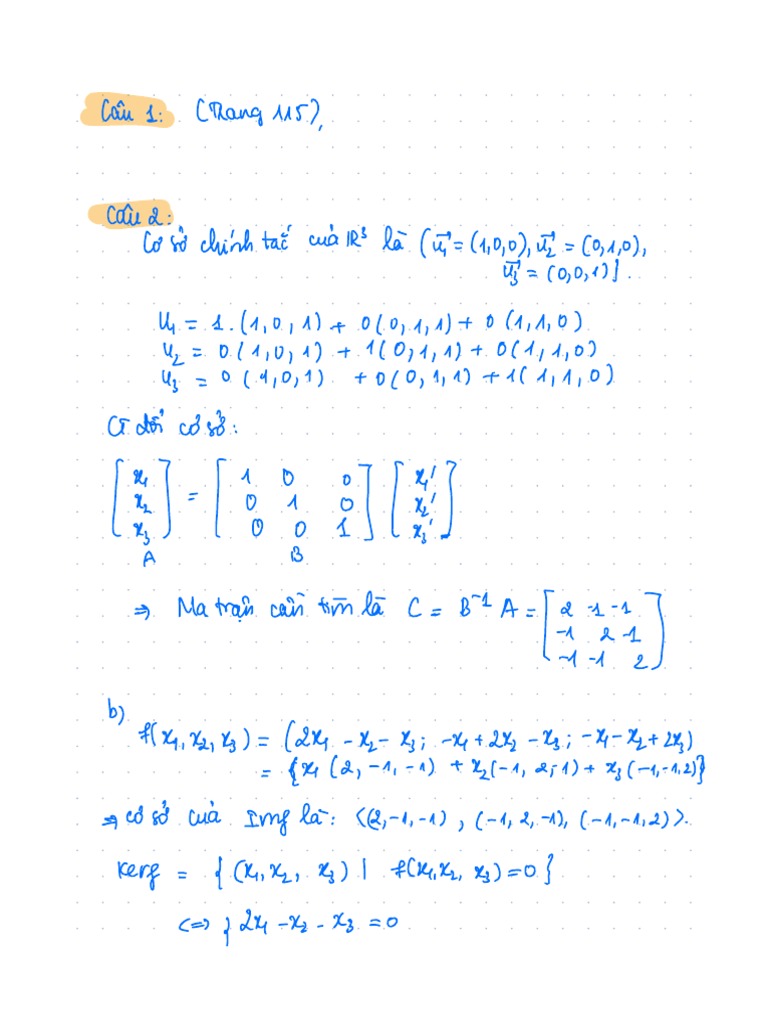 Câu 1: (Trang 115),
Câu 2:
Cơ sở chính tắc của ℝ³ là {u₁⃗ = (1,0,0), u₂⃗ = (0,1,0),
u₃⃗ = (0,0,1)}.
u₁ = 1.(1,0,1) + 0(0,1,1) + 0(1,1,0)
u₂ = 0(1,0,1) + 1(0,1,1) + 0(1,1,0)
u₃ = 0(1,0,1) + 0(0,1,1) + 1(1,1,0)
CT đổi cơ sở:
[x₁] = [1 0 0] [x₁']
[x₂] = [0 1 0] [x₂']
[x₃] = [0 0 1] [x₃']
A B
⇒ Ma trận cần tìm là C = B⁻¹ A = [2 -1 -1
-1 2 -1
-1 -1 2]
b)
f(x₁, x₂, x₃) = (2x₁ - x₂ - x₃; -x₁ + 2x₂ - x₃; -x₁ - x₂ + 2x₃)
= {x₁(2, -1, -1) + x₂(-1, 2, -1) + x₃(-1, -1, 2)}
⇒ cơ sở của Imf là: <(2,-1,-1), (-1, 2, -1), (-1,-1,2)>.
Kerf = {(x₁, x₂, x₃) | f(x₁, x₂, x₃) = 0}
<=> { 2x₁ - x₂ - x₃ = 0